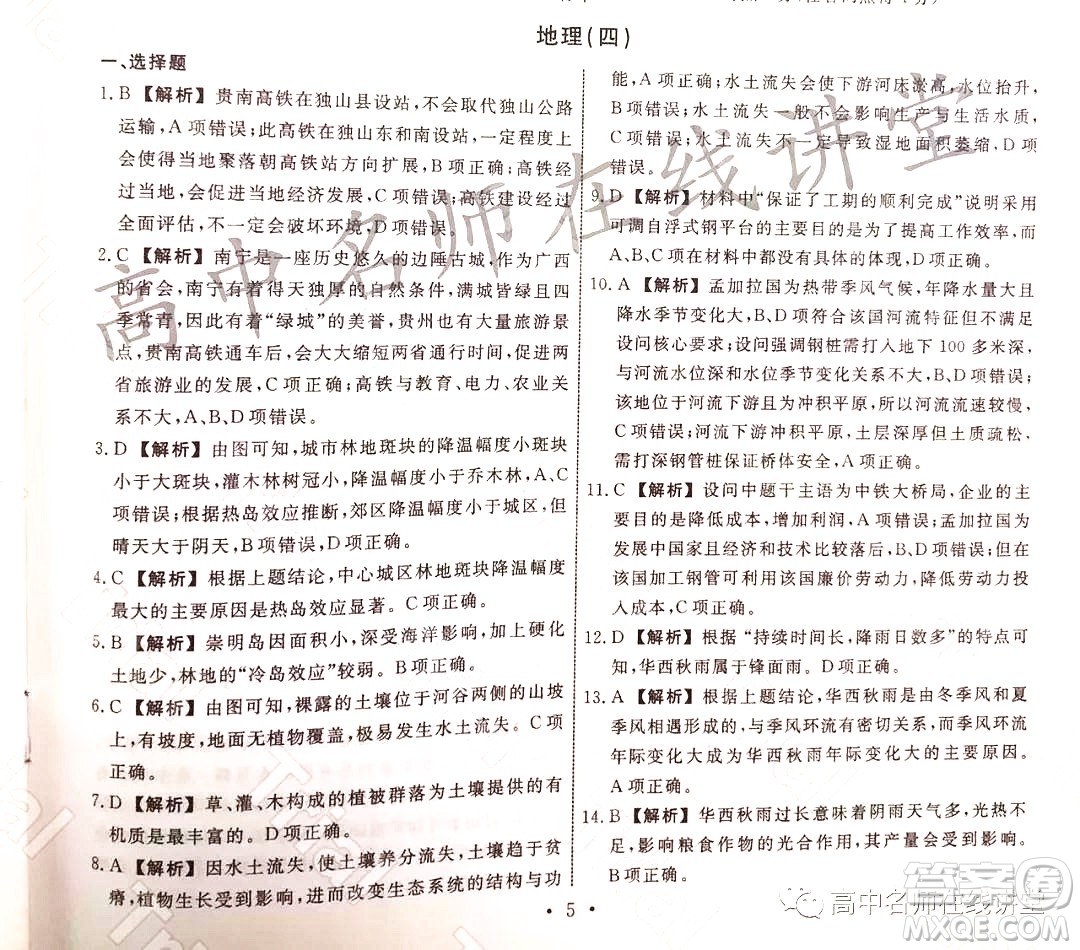 地理(四)
一、选择题
1. B 【解析】 贵南高铁在独山县设站,不会取代独山公路
运输,A项错误;此高铁在独山东和南设站,一定程度上
会使得当地聚落朝高铁站方向扩展,B项正确;高铁经
过当地,会促进当地经济发展,C项错误;高铁建设经过
全面评估,不一定会破坏环境,D项错误。
2. C 【解析】 南宁是一座历史悠久的边陲古城,作为广西
的省会,南宁有着得天独厚的自然条件,满城皆绿且四
季常青,因此有着“绿城”的美誉,贵州也有大量旅游景
点,贵南高铁通车后,会大大缩短两省通行时间,促进两
省旅游业的发展,C项正确;高铁与教育、电力、农业关系
不大,A、B、D项错误。
3. D 【解析】 由图可知,城市林地斑块的降温幅度小斑块
小于大斑块,灌木林树冠小,降温幅度小于乔木林,A、C
项错误;根据热岛效应推断,郊区降温幅度小于城区,但
晴天大于阴天,B项错误,D项正确。
4. C 【解析】 根据上题结论,中心城区林地斑块降温幅度
最大的主要原因是热岛效应显著。C项正确。
5. B 【解析】 崇明岛因面积小,深受海洋影响,加上硬化
土地少,林地的“冷岛效应”较弱。B项正确。
6. C 【解析】 由图可知,裸露的土壤位于河谷两侧的山坡
上,有坡度,地面无植物覆盖,极易发生水土流失。C项
正确。
7. D 【解析】 草、灌、木构成的植被群落为土壤提供的有
机质是最丰富的。D项正确。
8. A 【解析】 因水土流失,使土壤养分流失,土壤趋于贫
瘠,植物生长受到影响,进而改变生态系统的结构与功
能,A项正确;水土流失会使下游河床淤高,水位抬升,
B项错误;水土流失不会影响生产与生活水质,
C项错误;水土流失不一定导致湿地面积萎缩,D项
错误。
9. D 【解析】 材料中“保证了工期的顺利完成”说明采用
可调自浮式钢平台的主要目的是为了提高工作效率,而
A、B、C项在材料中都没有体现。D项正确。
10. A 【解析】 孟加拉国为热带季风气候,年降水量大且
降水季节变化大,B、D项符合该国河流特征但不满足
设问核心要求;设问强调钢桩需打入地下100多米深,
与河流水位深和水位季节变化关系不大,B、D项错误;
该地位于河流下游且为冲积平原,所以河流流速较慢,
C项错误;河流下游冲积平原,土层深厚但土质疏松,
需打深钢管桩保证桥体安全,A项正确。
11. C 【解析】 设问中题干主语为中铁大桥局,企业的主
要目的是降低成本,增加利润,A项错误;孟加拉国为
发展中国家且经济和技术比较落后,B、D项错误;在
该国加工钢管可利用该国廉价劳动力,降低劳动力的
投入成本,C项正确。
12. D 【解析】 根据“持续时间长,降雨日数多”的特点可
知,华西秋雨属于锋面雨。D项正确。
13. A 【解析】 根据上题结论,华西秋雨是由冬季风和夏
季风相遇形成的,与季风环流有密切关系,而季风环流
年际变化大成为华西秋雨年际变化大的主要原因。
A项正确。
14. B 【解析】 华西秋雨过长意味着阴雨天气多,光热不
足,影响粮食作物的光合作用,其产量会受到影响。
B项正确。
• 5 •
高中名师在线讲堂
高中名师在线讲堂
答案圈
MXQE.COM
Trial
Trial